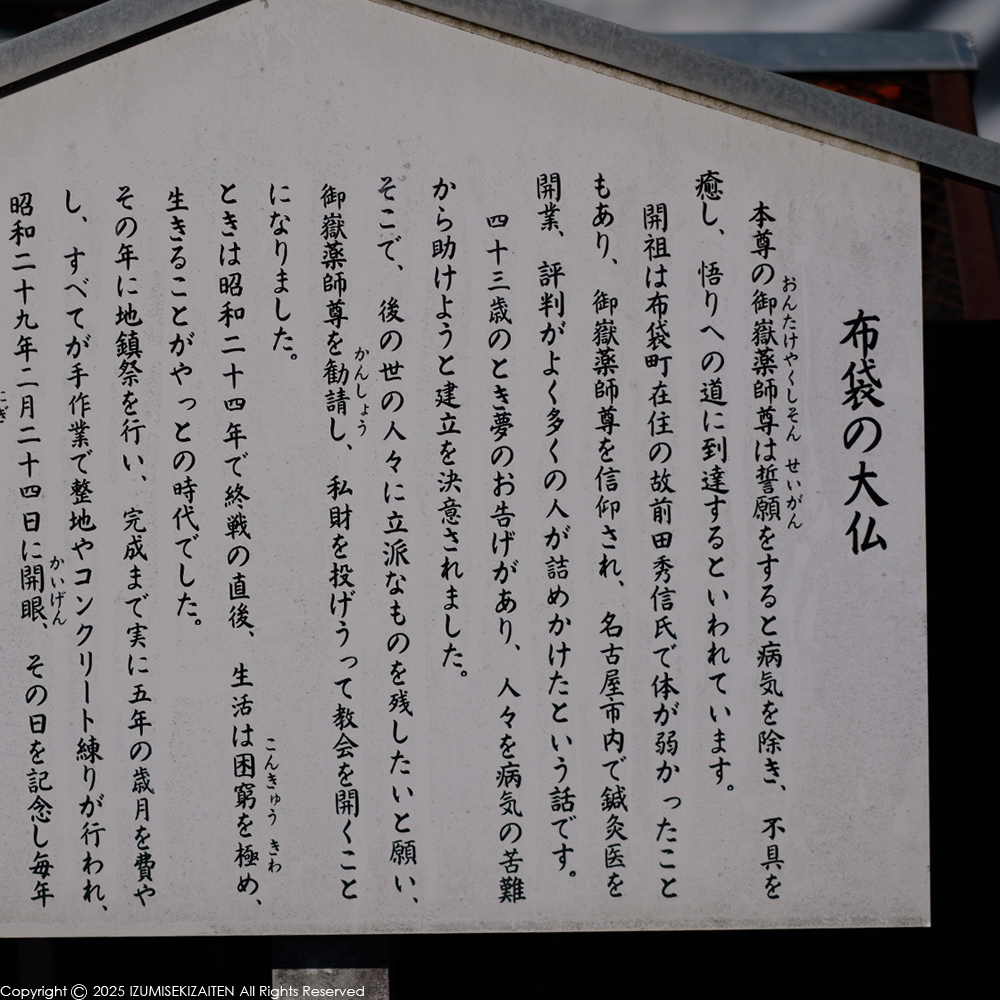 布袋の大仏
本尊の御嶽薬師尊は誓願をすると病気を除き、不具を
おんたけやくしそん せいがん
癒し、悟りへの道に到達するといわれています。
開祖は布袋町在住の故前田秀信氏で体が弱かったこと
もあり、御嶽薬師尊を信仰され、名古屋市内で鍼灸医を
開業、評判がよく多くの人が詰めかけたという話です。
四十三歳のとき夢のお告げがあり、人々を病気の苦難
から助けようと建立を決意されました。
そこで、後の世の人々に立派なものを残したいと願い、
御嶽薬師尊を勧請し、私財を投げうって教会を開くこと
かんしょう
になりました。
ときは昭和二十四年で終戦の直後、生活は困窮を極め、
こんきゅう きわ
生きることがやっとの時代でした。
その年に地鎮祭を行い、完成まで実に五年の歳月を費や
し、すべてが手作業で整地やコンクリート練りが行われ、
昭和二十九年二月二十四日に開眼、その日を記念し毎年
かいげん
にぎ
Copyright © 2025 IZUMISEKIZAITEN All Rights Reserved